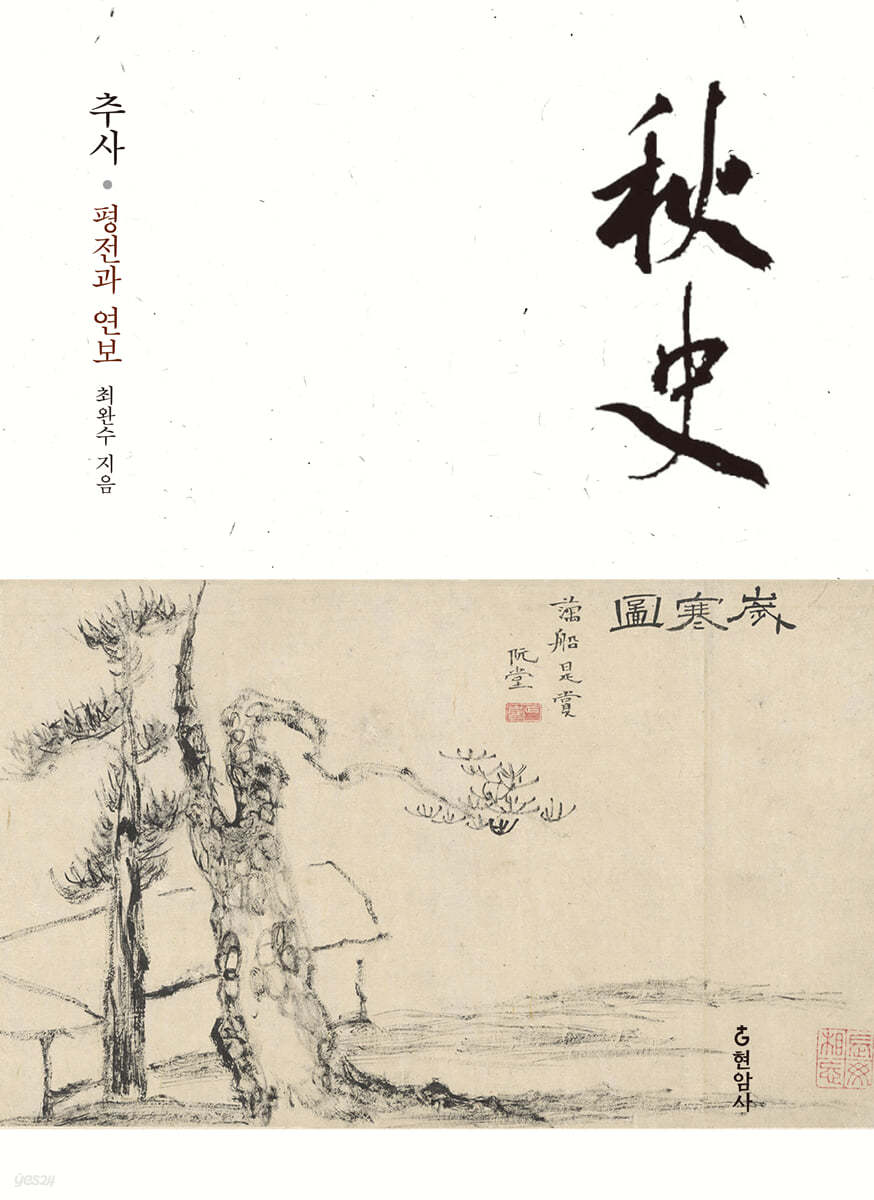 秋史
추사 • 평전과 연보
최완수 지음
歲寒圖
藕船是賞
阮堂
長毋相忘
현암사
yes24